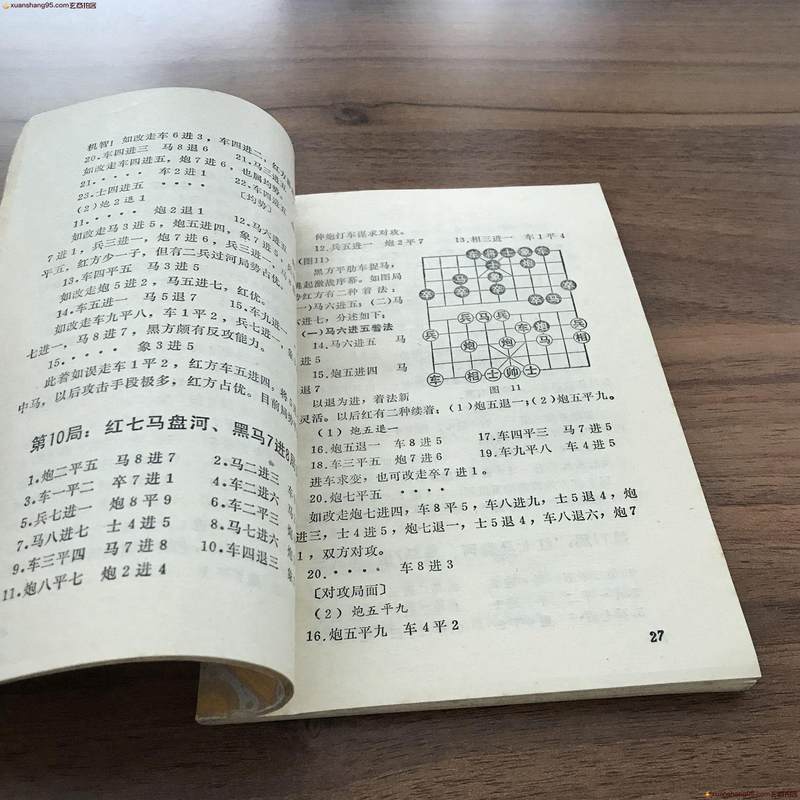 xuanshang95.com玄香拍卖
机智！如改走车6进3，车四进二，红方
20.车四进三 马8退6 21.马三进五
如改走车四进五，炮7进6，也属均势。
21.···· 车2进1 22.车四进五
23.士四进五 〔均势〕
(2)炮2退1
11.···· 炮2退1 12.马六进五
如改走马3进5，炮五进四，象7进5，
7进1，兵三进一，炮7进6，兵三进一，
平五，红方少一子，但有二兵过河局势占优。
13.车四平五 马3进5
如改走炮5进2，马五进七，红优。
14.车五进一 马5退7 15.车九进一
如改走车九平八，车1平2，兵七进一，象
七进一，马8进7，黑方颇有反攻能力。
15.···· 象3进5
此着如误走车1平2，红方车五进四，将5
中马，以后攻击手段极多，红方占优。目前局势
第10局：红七马盘河、黑马7进8
1.炮二平五 马8进7 2.马二进三
3.车一平二 卒7进1 4.车二进六
5.兵七进一 炮8平9 6.车二平三
7.马八进七 士4进5 8.马七进六
9.车三平四 马7进8 10.车四退三 象
11.炮八平七 炮2进4
伸炮打车谋求对攻。
12.兵五进一 炮2平7 13.相三进一 车1平4
(图11)
黑方平肋车捉马，
起激战序幕。如图局
势红方有二种着法：
(一)马六进五；(二)马
六进七，分述如下：
(一)马六进五着法
14.马六进五 马
15.炮五进四 马
退7
图 11
以退为进，着法新
灵活。以后红有二种续着：(1)炮五退一；(2)炮五平九。
(1)炮五退一
16.炮五退一 车8进5 17.车四平三 马7进5
18.车三平五 炮7进6 19.车九平八 车4进5
进车求变，也可改走卒7进1。
20.炮七平五 ····
如改走炮七进四，车8平5，车八进九，士5退4，炮
进三，士4进5，炮七退一，士5退4，车八退六，炮7
1，双方对攻。
20.···· 车8进3
〔对攻局面〕
(2)炮五平九
16.炮五平九 车4平2
27
xuanshang95.com玄香拍卖